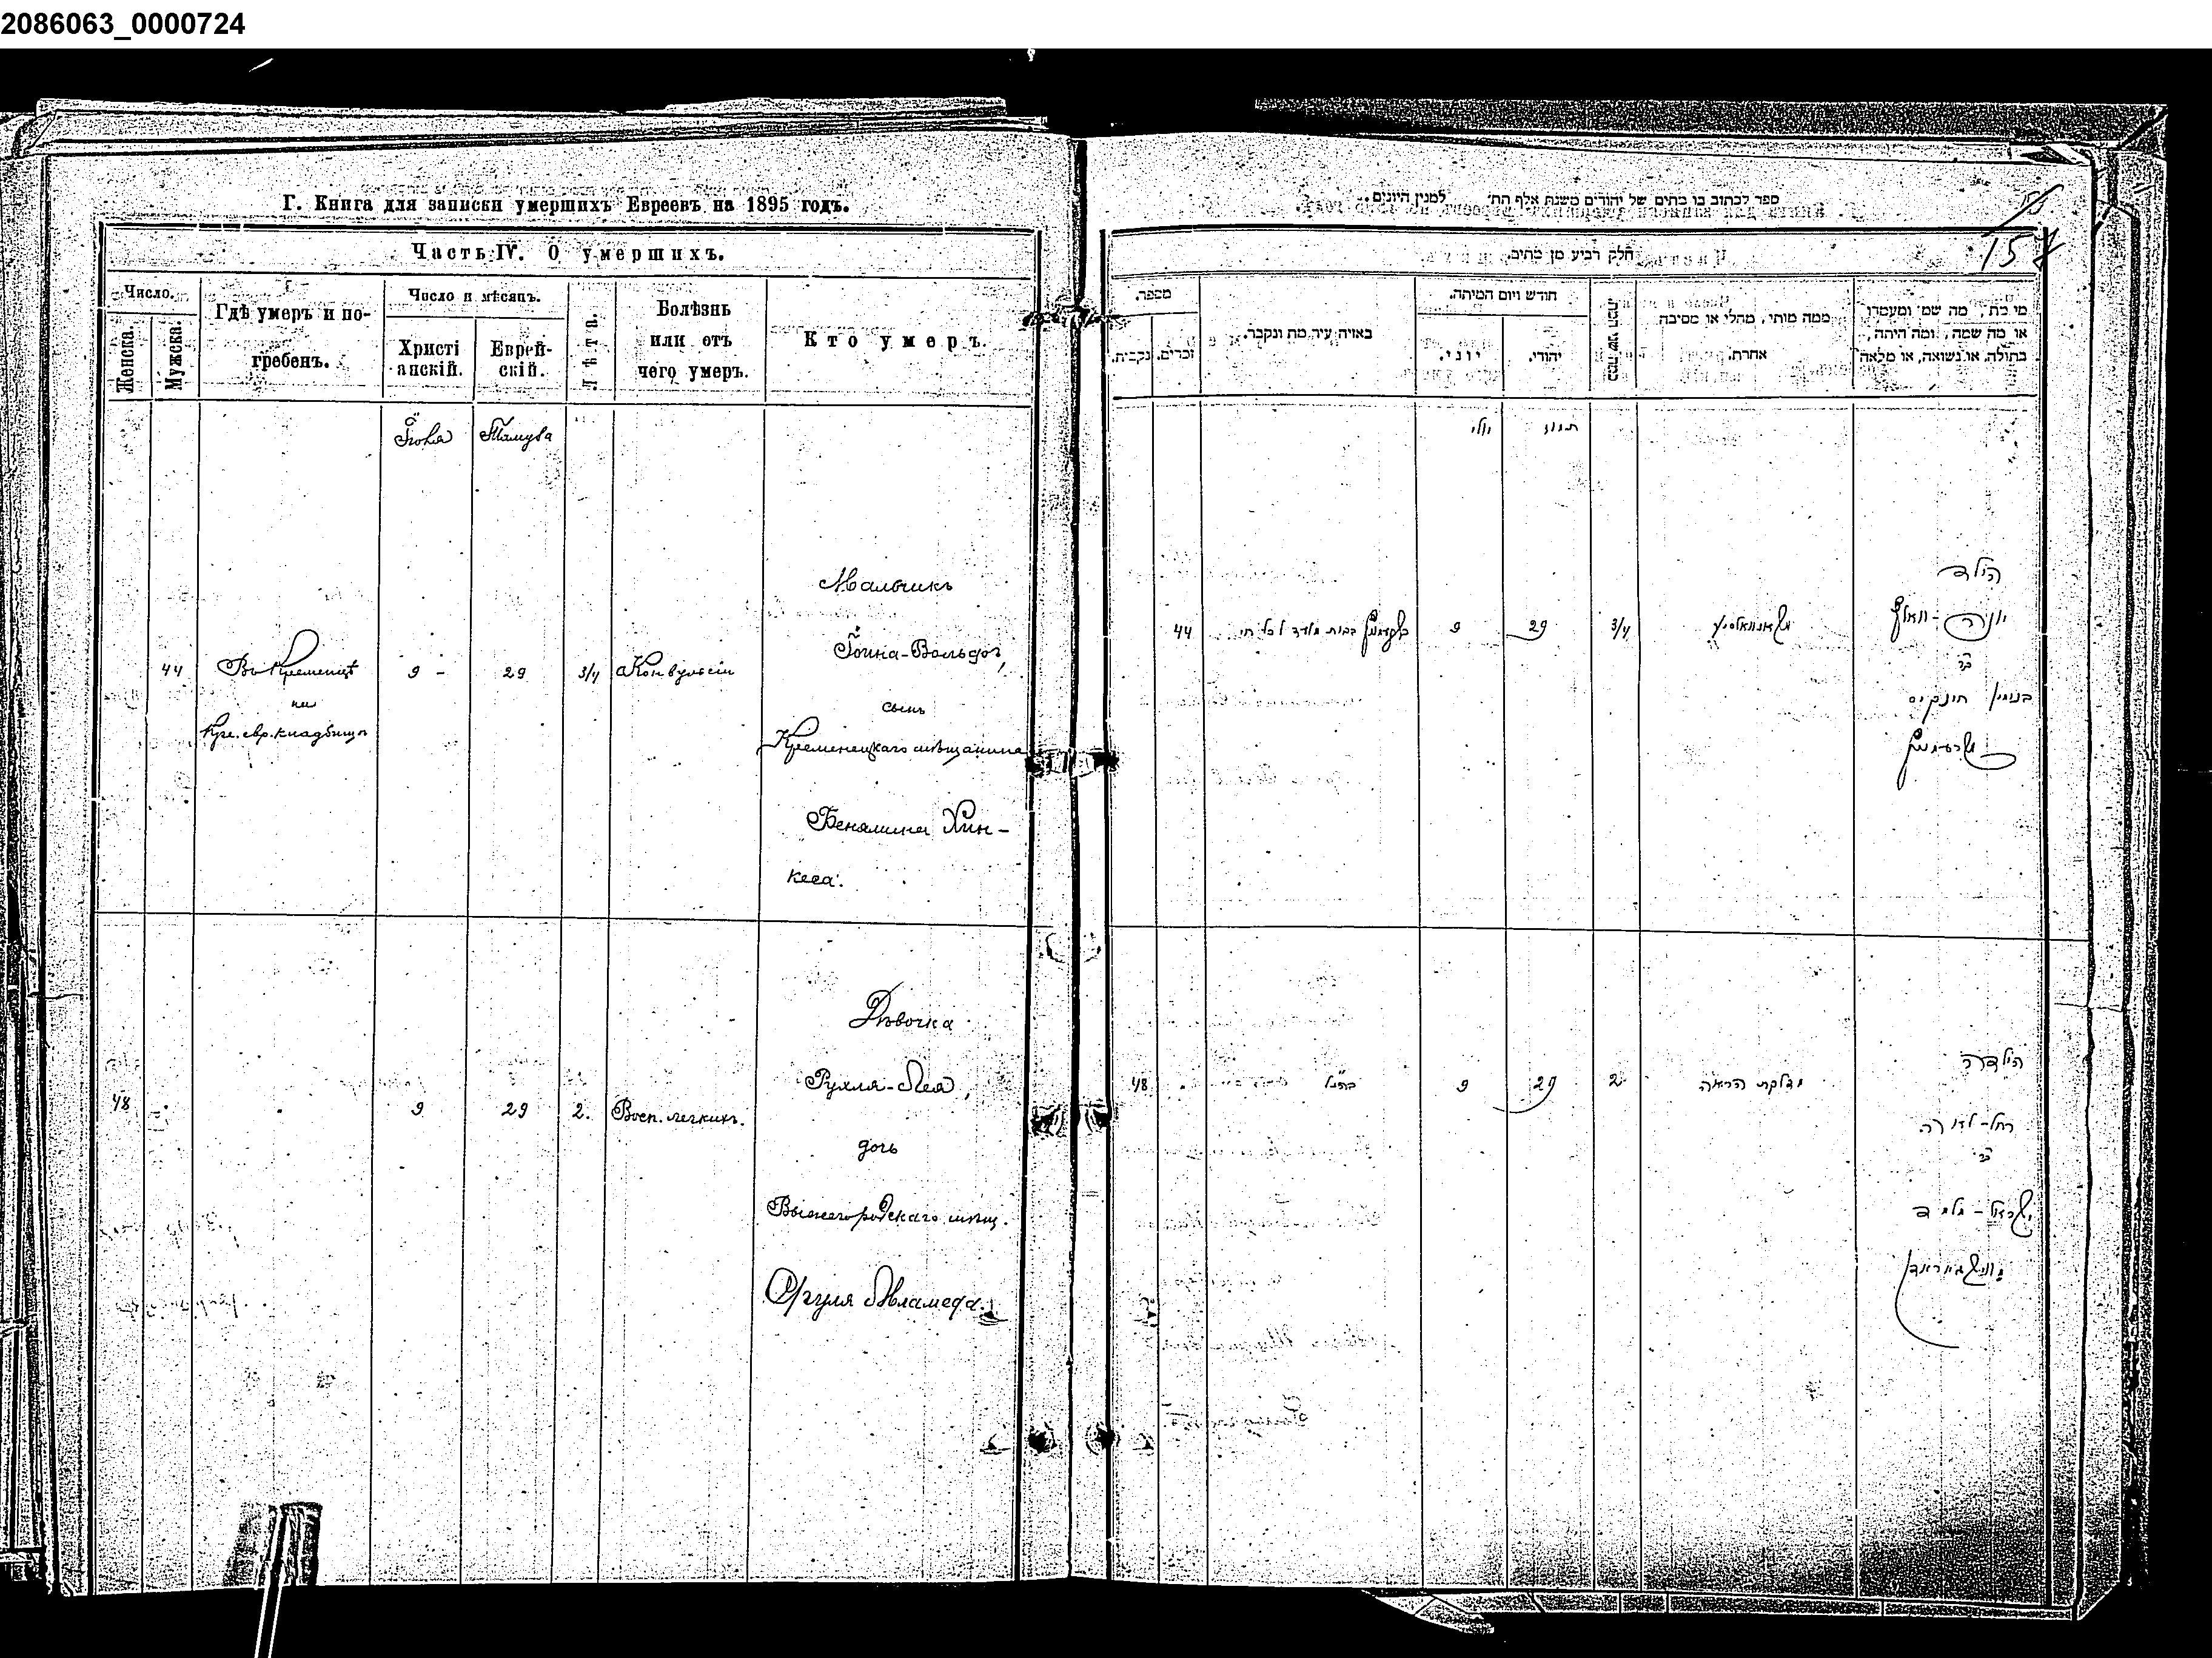 2086063_0000724
Г. Книга для записки умершихъ Евреевъ на 1895 годъ.
Часть IV. О умершихъ.
Число.
Женска.
Мужска.
Гдѣ умеръ и по-
гребенъ.
Число и мѣсяцъ.
Христі
анскій.
Еврей-
скій.
Лѣта.
Болѣзнь
или отъ
чего умеръ.
Кто умеръ.
Іюля
Тамуза
44
Въ Кременцѣ
на
Кре. евр. кладбищѣ
9 -
29
3/4
Конвульсіи
Мальчикъ
Іоина-Вольфъ,
сынъ
Кременецкаго мѣщанина
Бенямина Хин-
кеса.
48
9
29
2.
Восп. легкихъ.
Дѣвочка
Рухля-Лея,
дочь
Вышегородскаго мѣщ.
Сруля Меламеда.
ספר לכתוב בו מתים של יהודים משנת אלף תת׳ למנין היונים.
157
חלק רביע מן מתים.
מספר.
נקבות.
זכרים.
באיזה עיר מת ונקבר.
חודש ויום המיתה.
יוני.
יהודי.
כמה שני המת
ממה מותו, מחלי או מסיבה
אחרת.
מי מת, מה שמו ומעמדו
או מה שמה, ומה היתה,
בתולה, או נשואה, או אלמנה
יולי
תמוז
44
9
29
3/4
הילד
יונה-וואלף
בר
בנימין חינקיס
48
כנ״ל
9
29
2
דלקת הריאה
הילדה
רחל-לאה